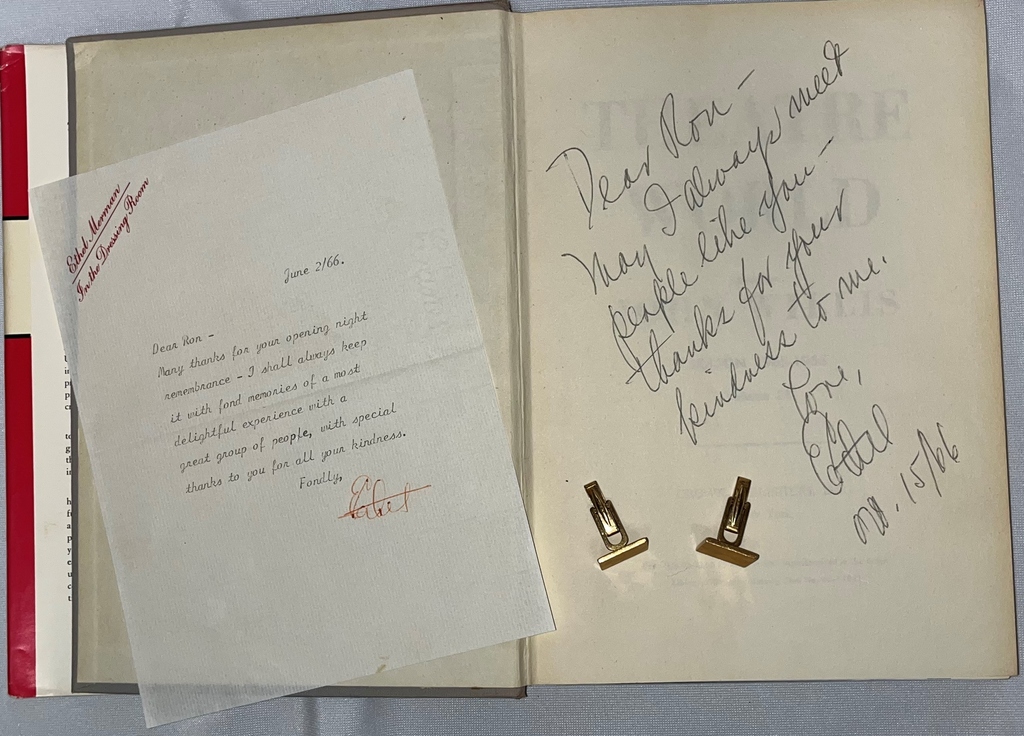 Ethel Merman
In the Dressing Room
June 2/66.
Dear Ron -
Many thanks for your opening night
remembrance - I shall always keep
it with fond memories of a most
delightful experience with a
great group of people, with special
thanks to you for all your kindness.
Fondly,
Ethel
Dear Ron -
May I always meet
people like you -
thanks for your
kindness to me.
Love,
Ethel
15/66
THEATRE
WORLD